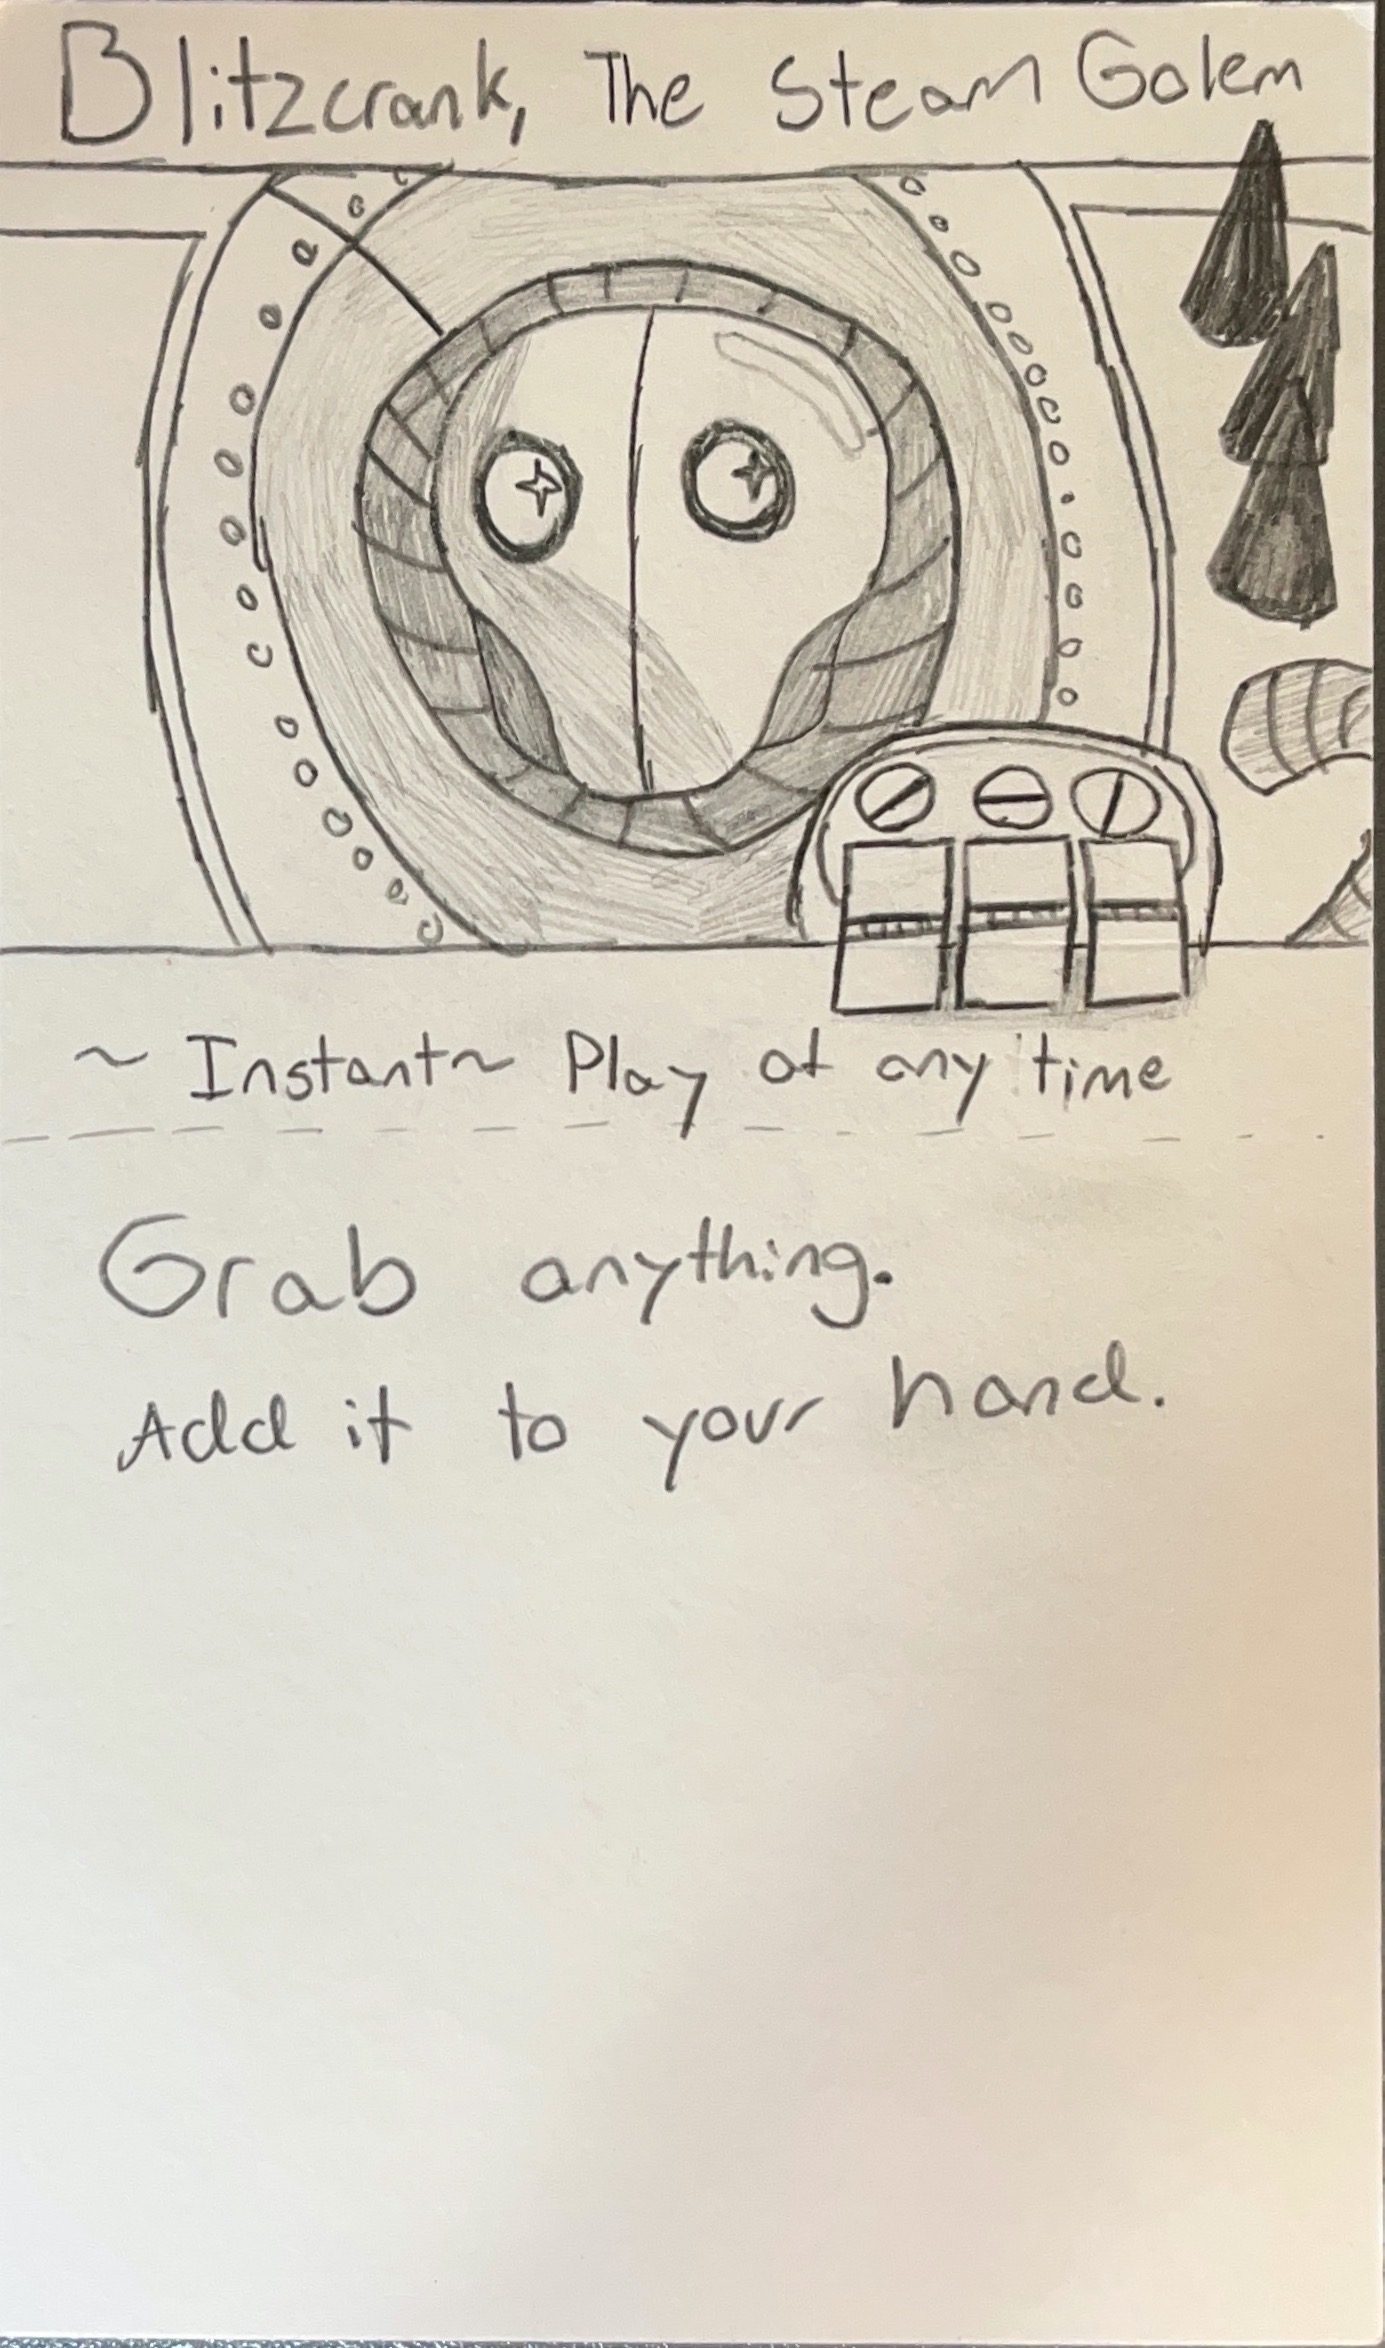 Blitzcrank, The Steam Golem
~ Instant ~ Play at any time
Grab anything.
Add it to your hand.